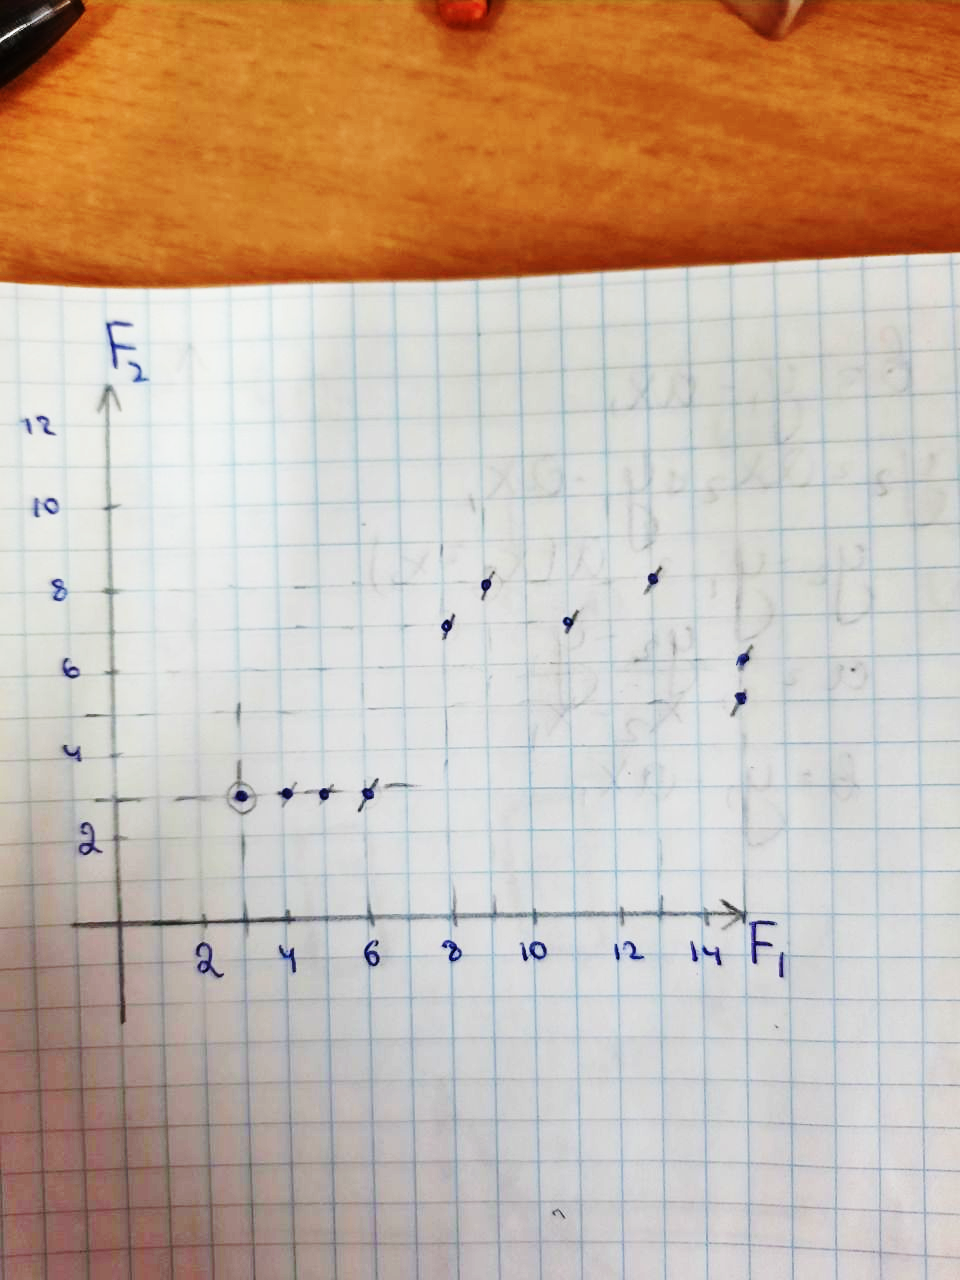 F₂
12
10
8
6
4
2
2 4 6 8 10 12 14 F₁